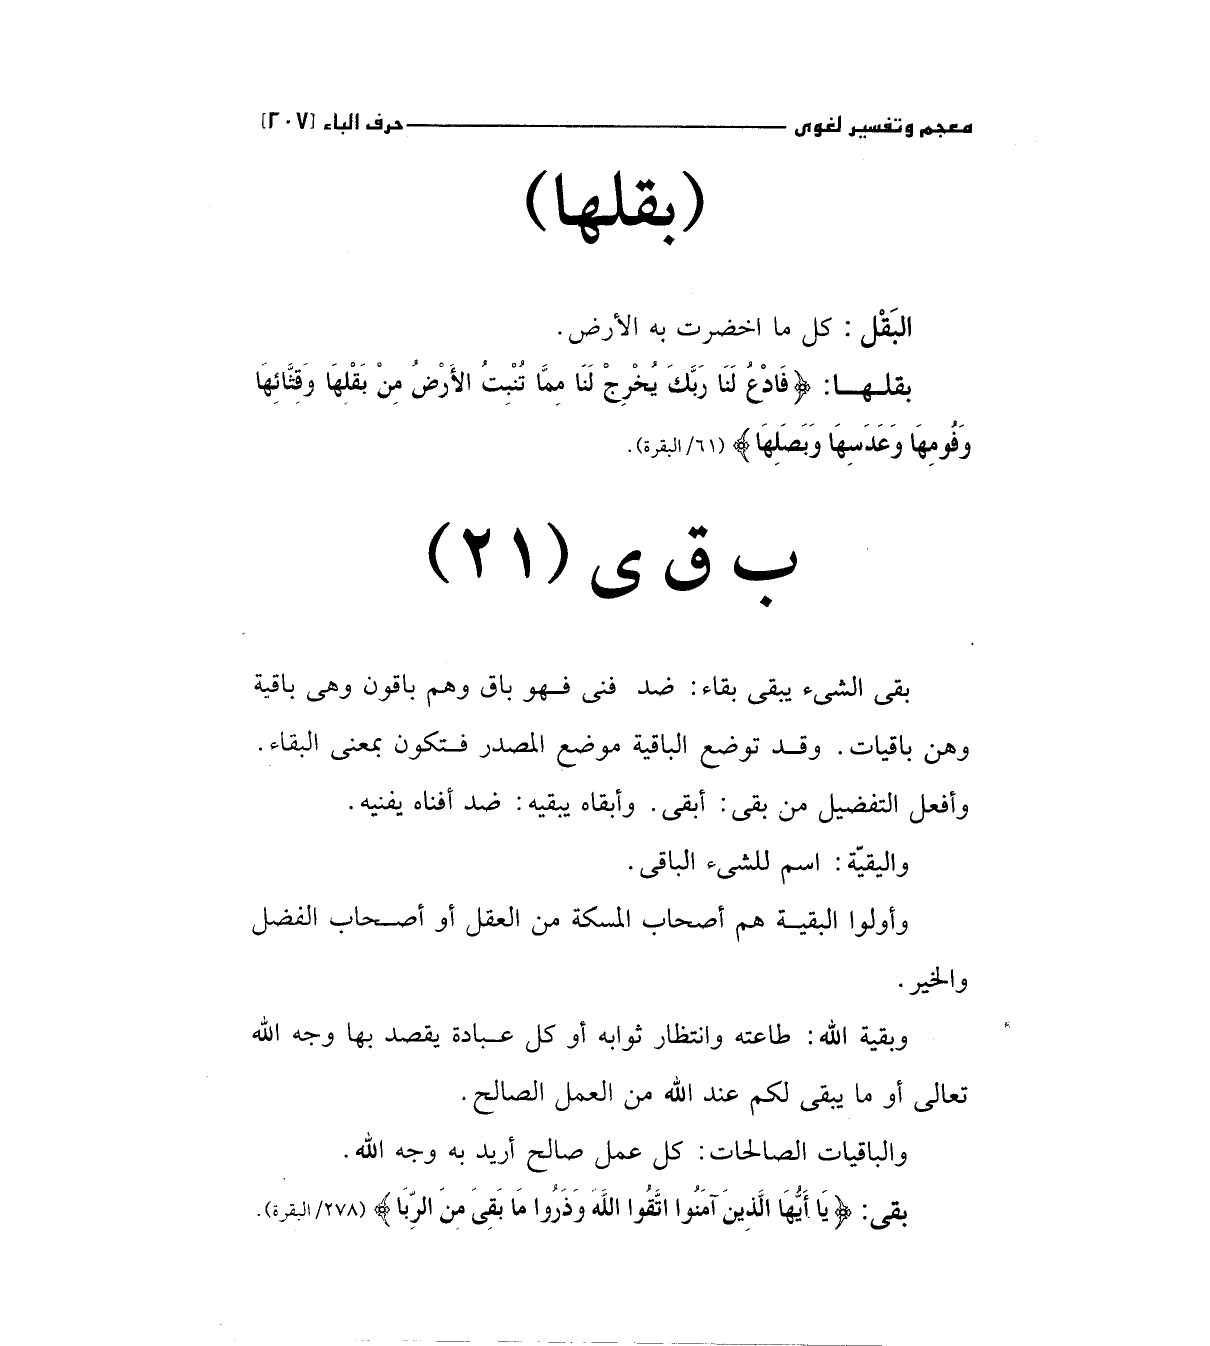 معجم وتفسير لغوى حرف الباء [٢٠٧]
(بقلها)
البَقْل : كل ما اخضرت به الأرض.
بقلهـا: ﴿فَادْعُ لَنَا رَبَّكَ يُخْرِجْ لَنَا مِمَّا تُنْبِتُ الأَرْضُ مِنْ بَقْلِهَا وَقِثَّائِهَا
وَفُومِهَا وَعَدَسِهَا وَبَصَلِهَا﴾ (٦١/ البقرة).
ب ق ى (٢١)
بقى الشىء يبقى بقاء: ضد فنى فهو باق وهم باقون وهى باقية
وهن باقيات. وقد توضع الباقية موضع المصدر فتكون بمعنى البقاء.
وأفعل التفضيل من بقى: أبقى. وأبقاه يبقيه: ضد أفناه يفنيه.
واليقيّة: اسم للشىء الباقى.
وأولوا البقية هم أصحاب المسكة من العقل أو أصحاب الفضل
والخير.
وبقية الله: طاعته وانتظار ثوابه أو كل عبادة يقصد بها وجه الله
تعالى أو ما يبقى لكم عند الله من العمل الصالح.
والباقيات الصالحات: كل عمل صالح أريد به وجه الله.
بقى: ﴿يَا أَيُّهَا الَّذِينَ آمَنُوا اتَّقُوا اللَّهَ وَذَرُوا مَا بَقِىَ مِنَ الرِّبَا﴾ (٢٧٨/ البقرة).